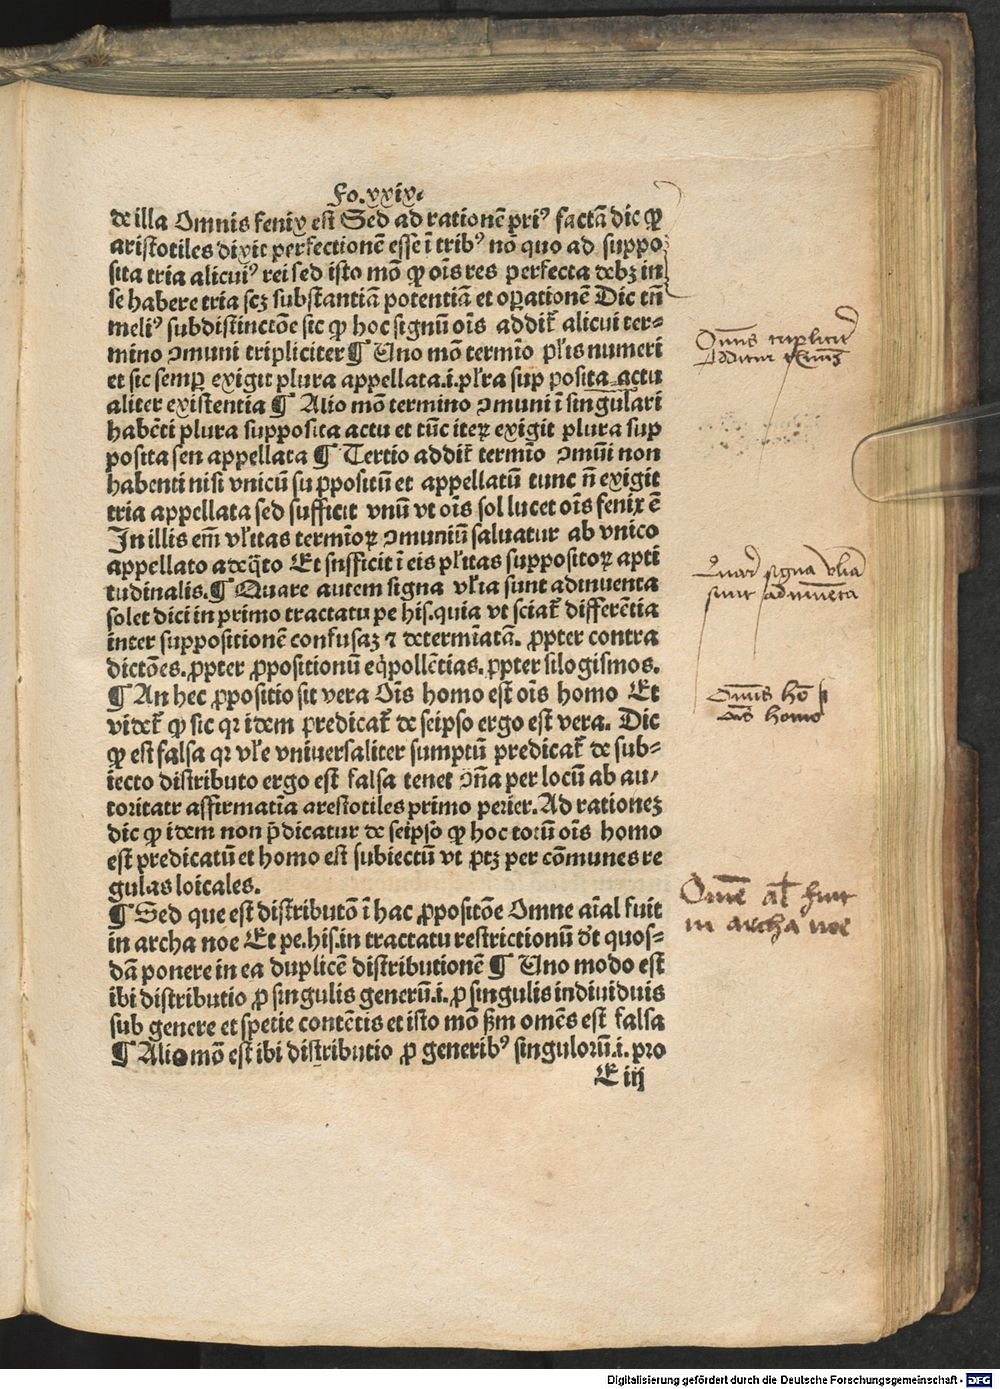 Fo.xxix.
de illa Omnis fenix est Sed ad rationē pri⁹ factā dic ꝙ
aristotiles dixit perfectionē esse ī trib⁹ nō quo ad suppo
sita tria alicui⁹ rei sed isto mō ꝙ oīs res perfecta debꝫ in
se habere tria scꝫ substantiā potentiā et oꝑationē Dic tn̄
meli⁹ subdistinctōe sic ꝙ hoc signū oīs addit̄ alicui ter⸗
mino ꝯmuni tripliciter ¶ Uno mō termīo pl̄is numeri
et sic semꝑ exigit plura appellata.i.pl̄ra sup posita actu
aliter existentia ¶ Alio mō termino ꝯmuni ī singulari
habēti plura supposita actu et tūc iteꝝ exigit plura sup
posita seu appellata ¶ Tertio addit̄ termīo ꝯmūi non
habenti nisi vnicū suppositū et appellatū tunc n̄ exigit
tria appellata sed sufficit vnū vt oīs sol lucet oīs fenix ē
In illis em̄ vl̄itas termīoꝝ ꝯmuniū saluatur ab vnico
appellato adeq̄to Et sufficit ī eis pl̄itas suppositoꝝ apti
tudinalis.¶ Quare autem signa vl̄ia sunt adinuenta
solet dici in primo tractatu pe his.quia vt sciat̄ differētia
inter suppositionē confusaꝫ ⁊ determīatā. ꝓpter contra
dictōes.ꝓpter ꝓpositionū eq̄pollētias.ꝓpter silogismos.
¶ An hec ꝓpositio sit vera Oīs homo est oīs homo Et
videt̄ ꝙ sic qꝛ idem predicat̄ de seipso ergo est vera. Dic
ꝙ est falsa qꝛ vl̄e vniuersaliter sumptū predicat̄ de sub⸗
iecto distributo ergo est falsa tenet ꝯn̄a per locū ab au⸗
toritatr affirmatīa arestotiles primo perier.Ad rationeꝫ
dic ꝙ idem non p̄dicatur de seipso ꝙ hoc totū oīs homo
est predicatū et homo est subiectū vt ptꝫ per cōmunes re
gulas loicales.
¶ Sed que est distributō ī hac ꝓpositōe Omne aīal fuit
in archa noe Et pe.his.in tractatu restrictionū dr̄t quos⸗
dā ponere in ea duplicē distributionē ¶ Uno modo est
ibi distributio ꝓ singulis generū.i.ꝓ singulis indiuiduis
sub genere et spetie contētis et isto mō ẜm omēs est falsa
¶ Alio mō est ibi distributio ꝓ generib⁹ singuloꝝ.i. pro
E iij
Omīs triplicit̄
additur
Quare signa vl̄ia
sunt adinuenta
Omīs hō
oīs homo
Omē aīl fuit
in archa noe
Digitalisierung gefördert durch die Deutsche Forschungsgemeinschaft - DFG